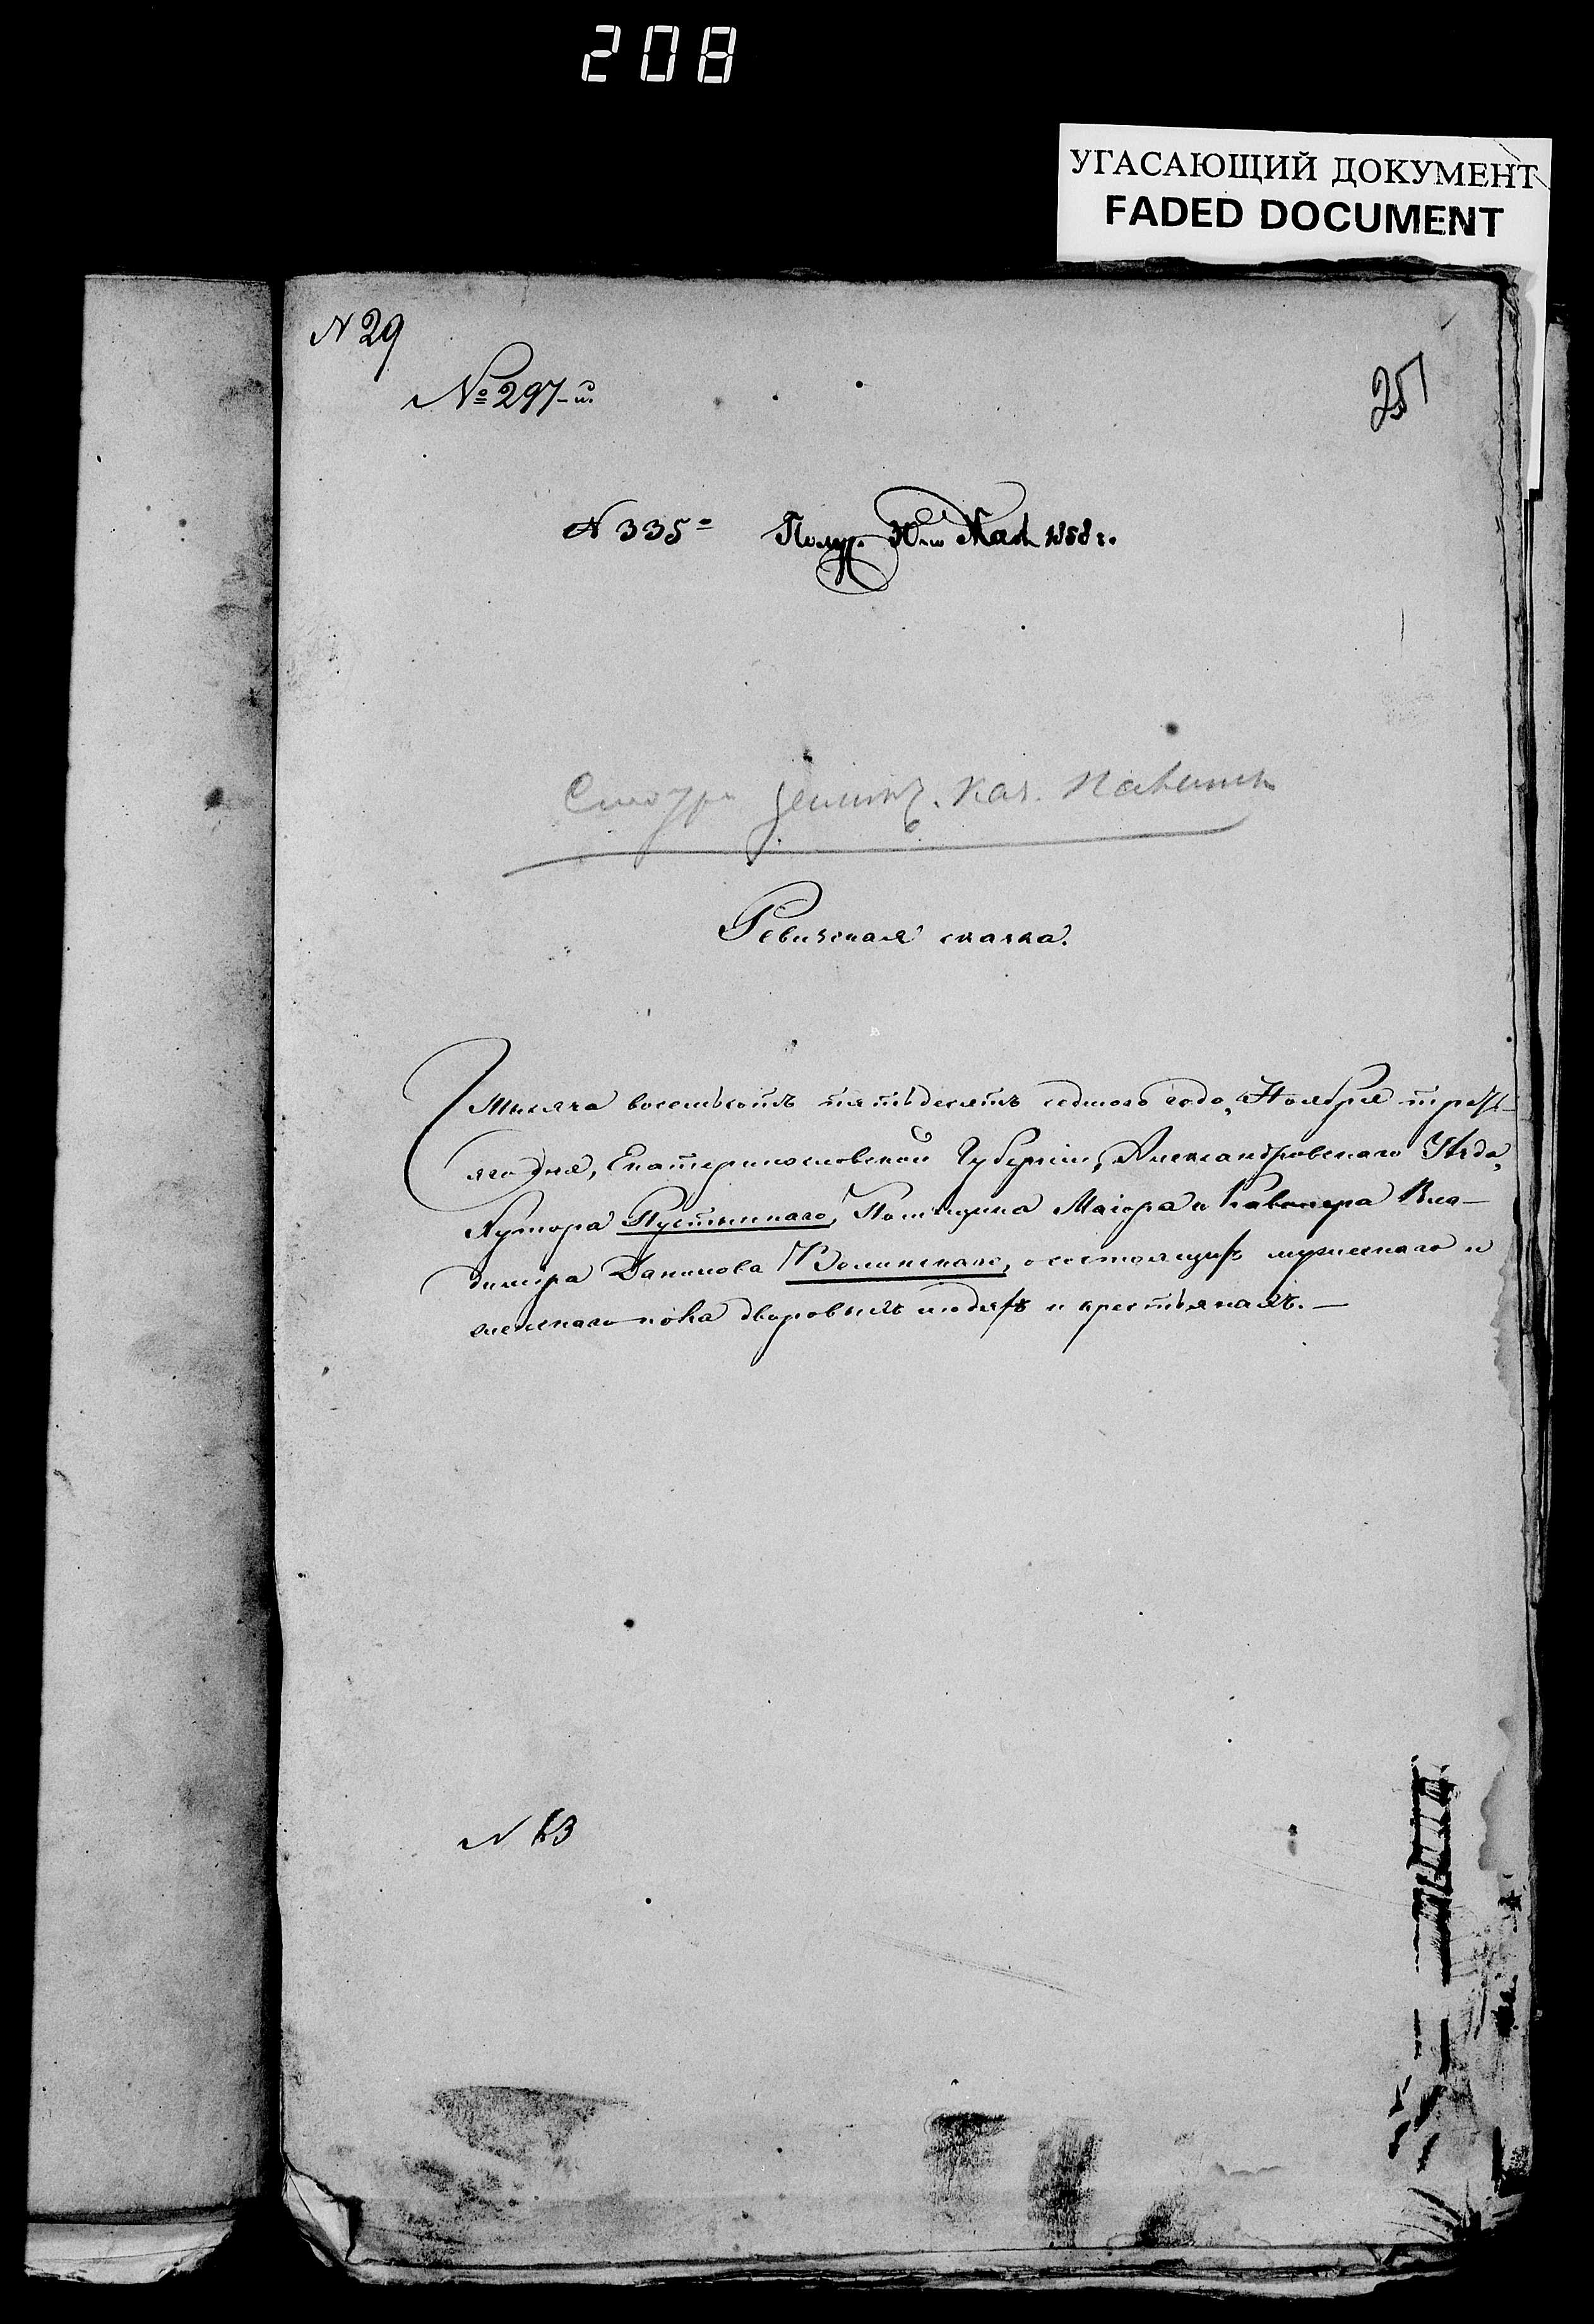 208
УГАСАЮЩИЙ ДОКУМЕНТ
FADED DOCUMENT
N 29
№ 297-й.
251
N 335 Получ. Мая 1858 г.
Ревизская сказка.
Тысяча восемьсотъ пятьдесятъ седмого года, Ноября треть-
яго дня, Екатеринославской Губерніи, Александровскаго Уѣзда,
Хутора Пустыннаго, Помѣщика Маіора и Кавалера Вла-
димира Данилова Волинскаго, о состоящихъ мужескаго и
женскаго пола дворовыхъ людяхъ и крестьянахъ. —